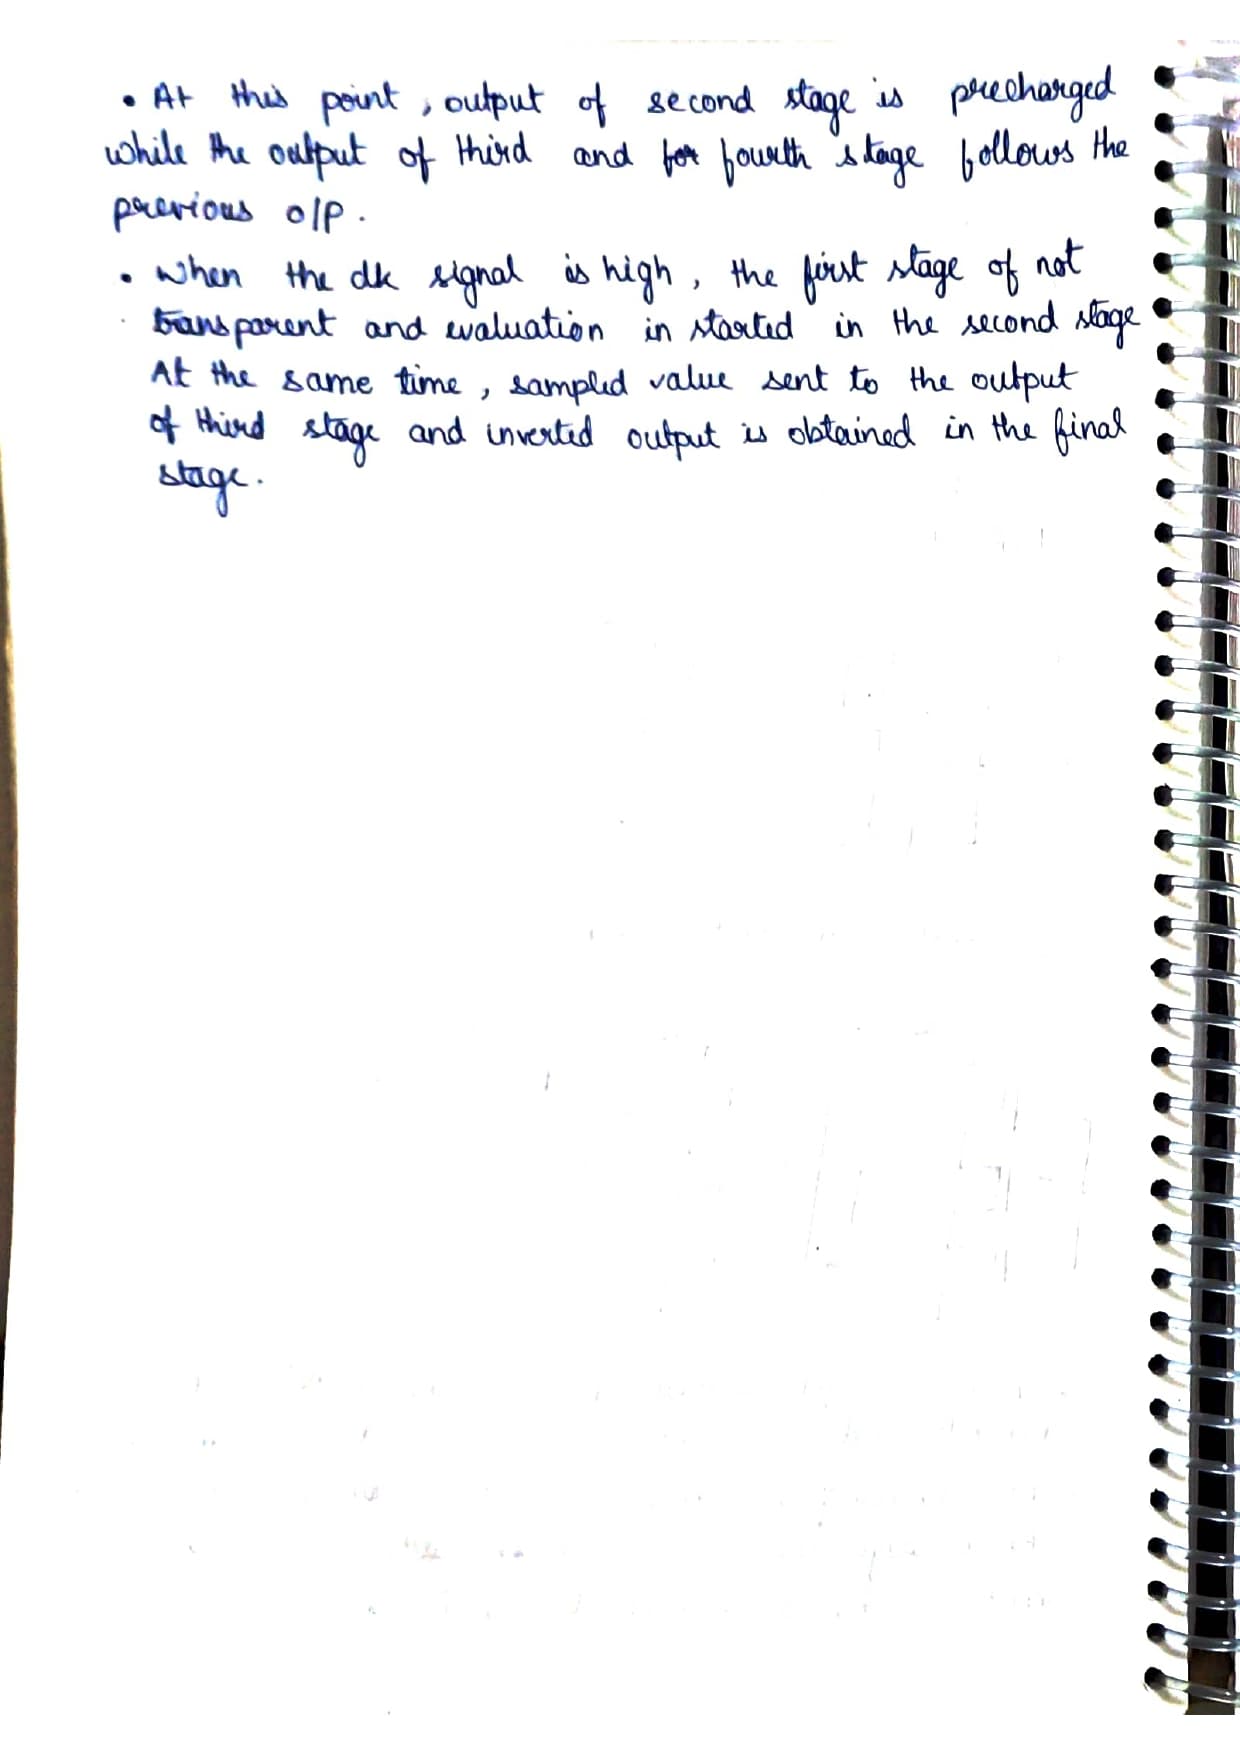 • At this point, output of second stage is precharged
while the output of third and for fourth stage follows the
previous o/p.
• When the clk signal is high, the first stage of not
transparent and evaluation in started in the second stage
At the same time, sampled value sent to the output
of third stage and inverted output is obtained in the final
stage.